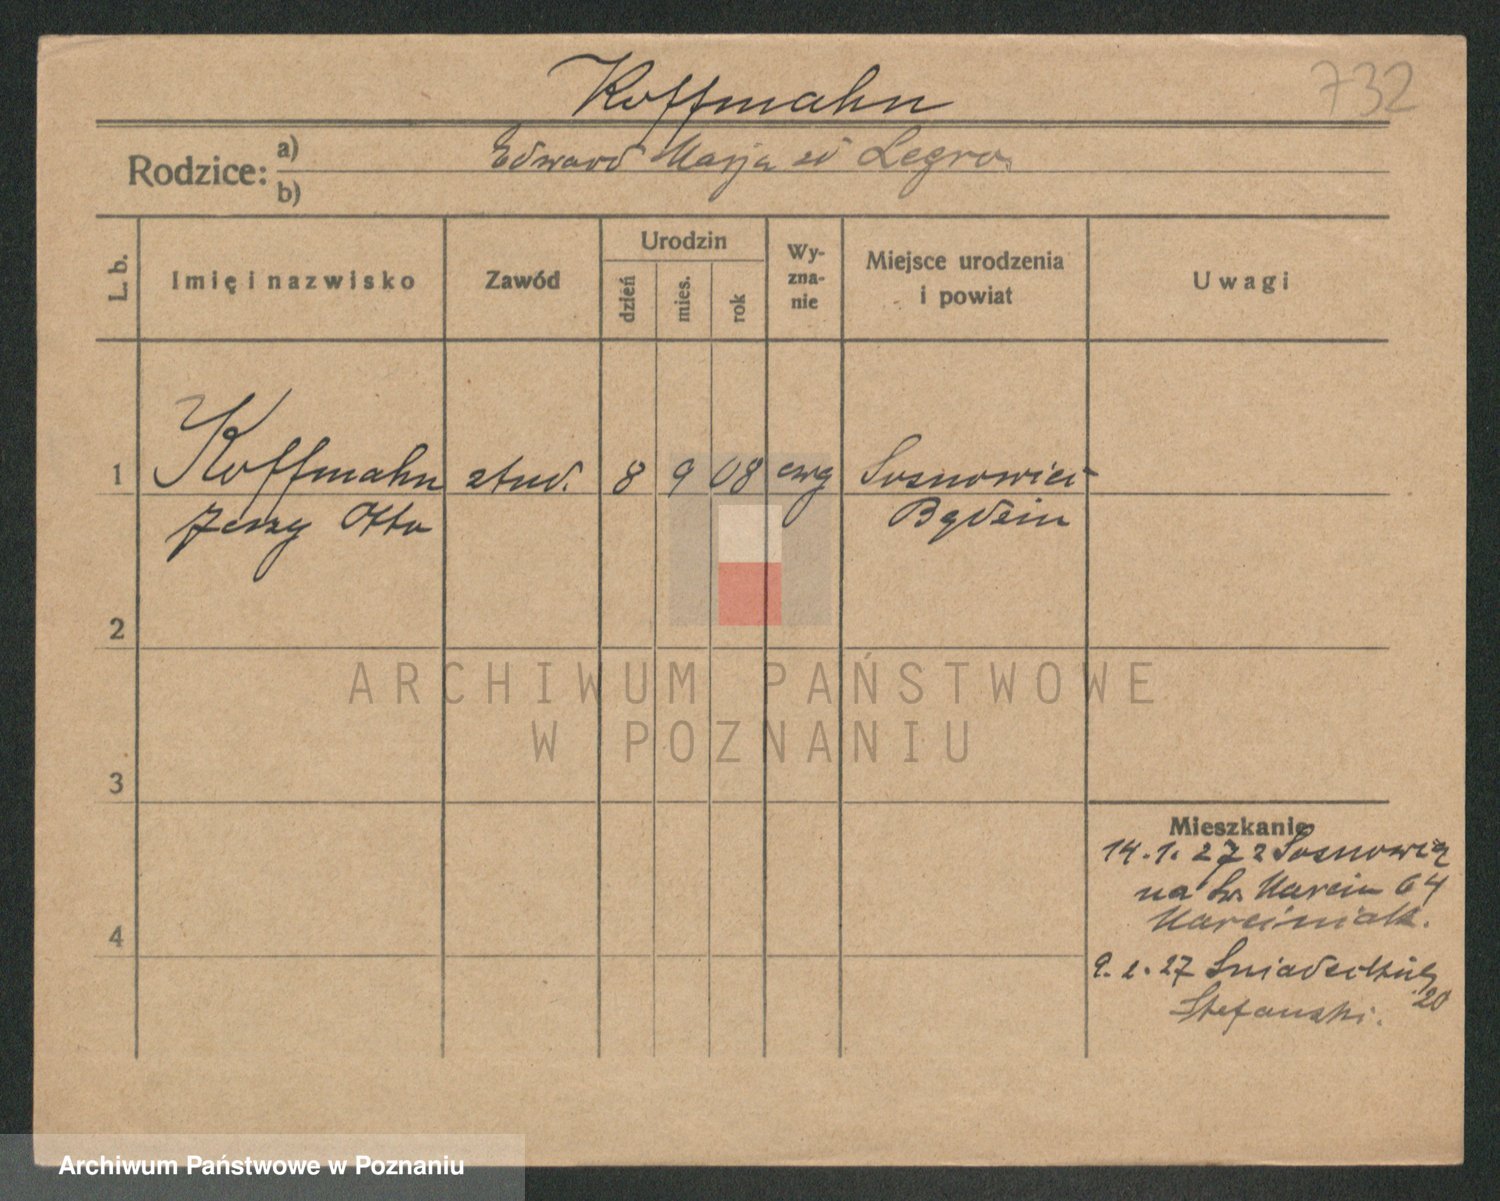 Koffmahn
732
Rodzice: a) Edward Marja zd Legro
b)
L. b.
Imię i nazwisko
Zawód
Urodzin
dzień
mies.
rok
Wy-
zna-
nie
Miejsce urodzenia
i powiat
Uwagi
1 Koffmahn stud. 8 9 08 ewg Sosnowiec
Jerzy Otto Będzin
2
3
4
Mieszkanie
14.1.27 z Sosnowca
na Św. Marcin 64
Marciniak.
9.2.27 Śniadeckich
20
Stefański.
ARCHIWUM PAŃSTWOWE
W POZNANIU
Archiwum Państwowe w Poznaniu